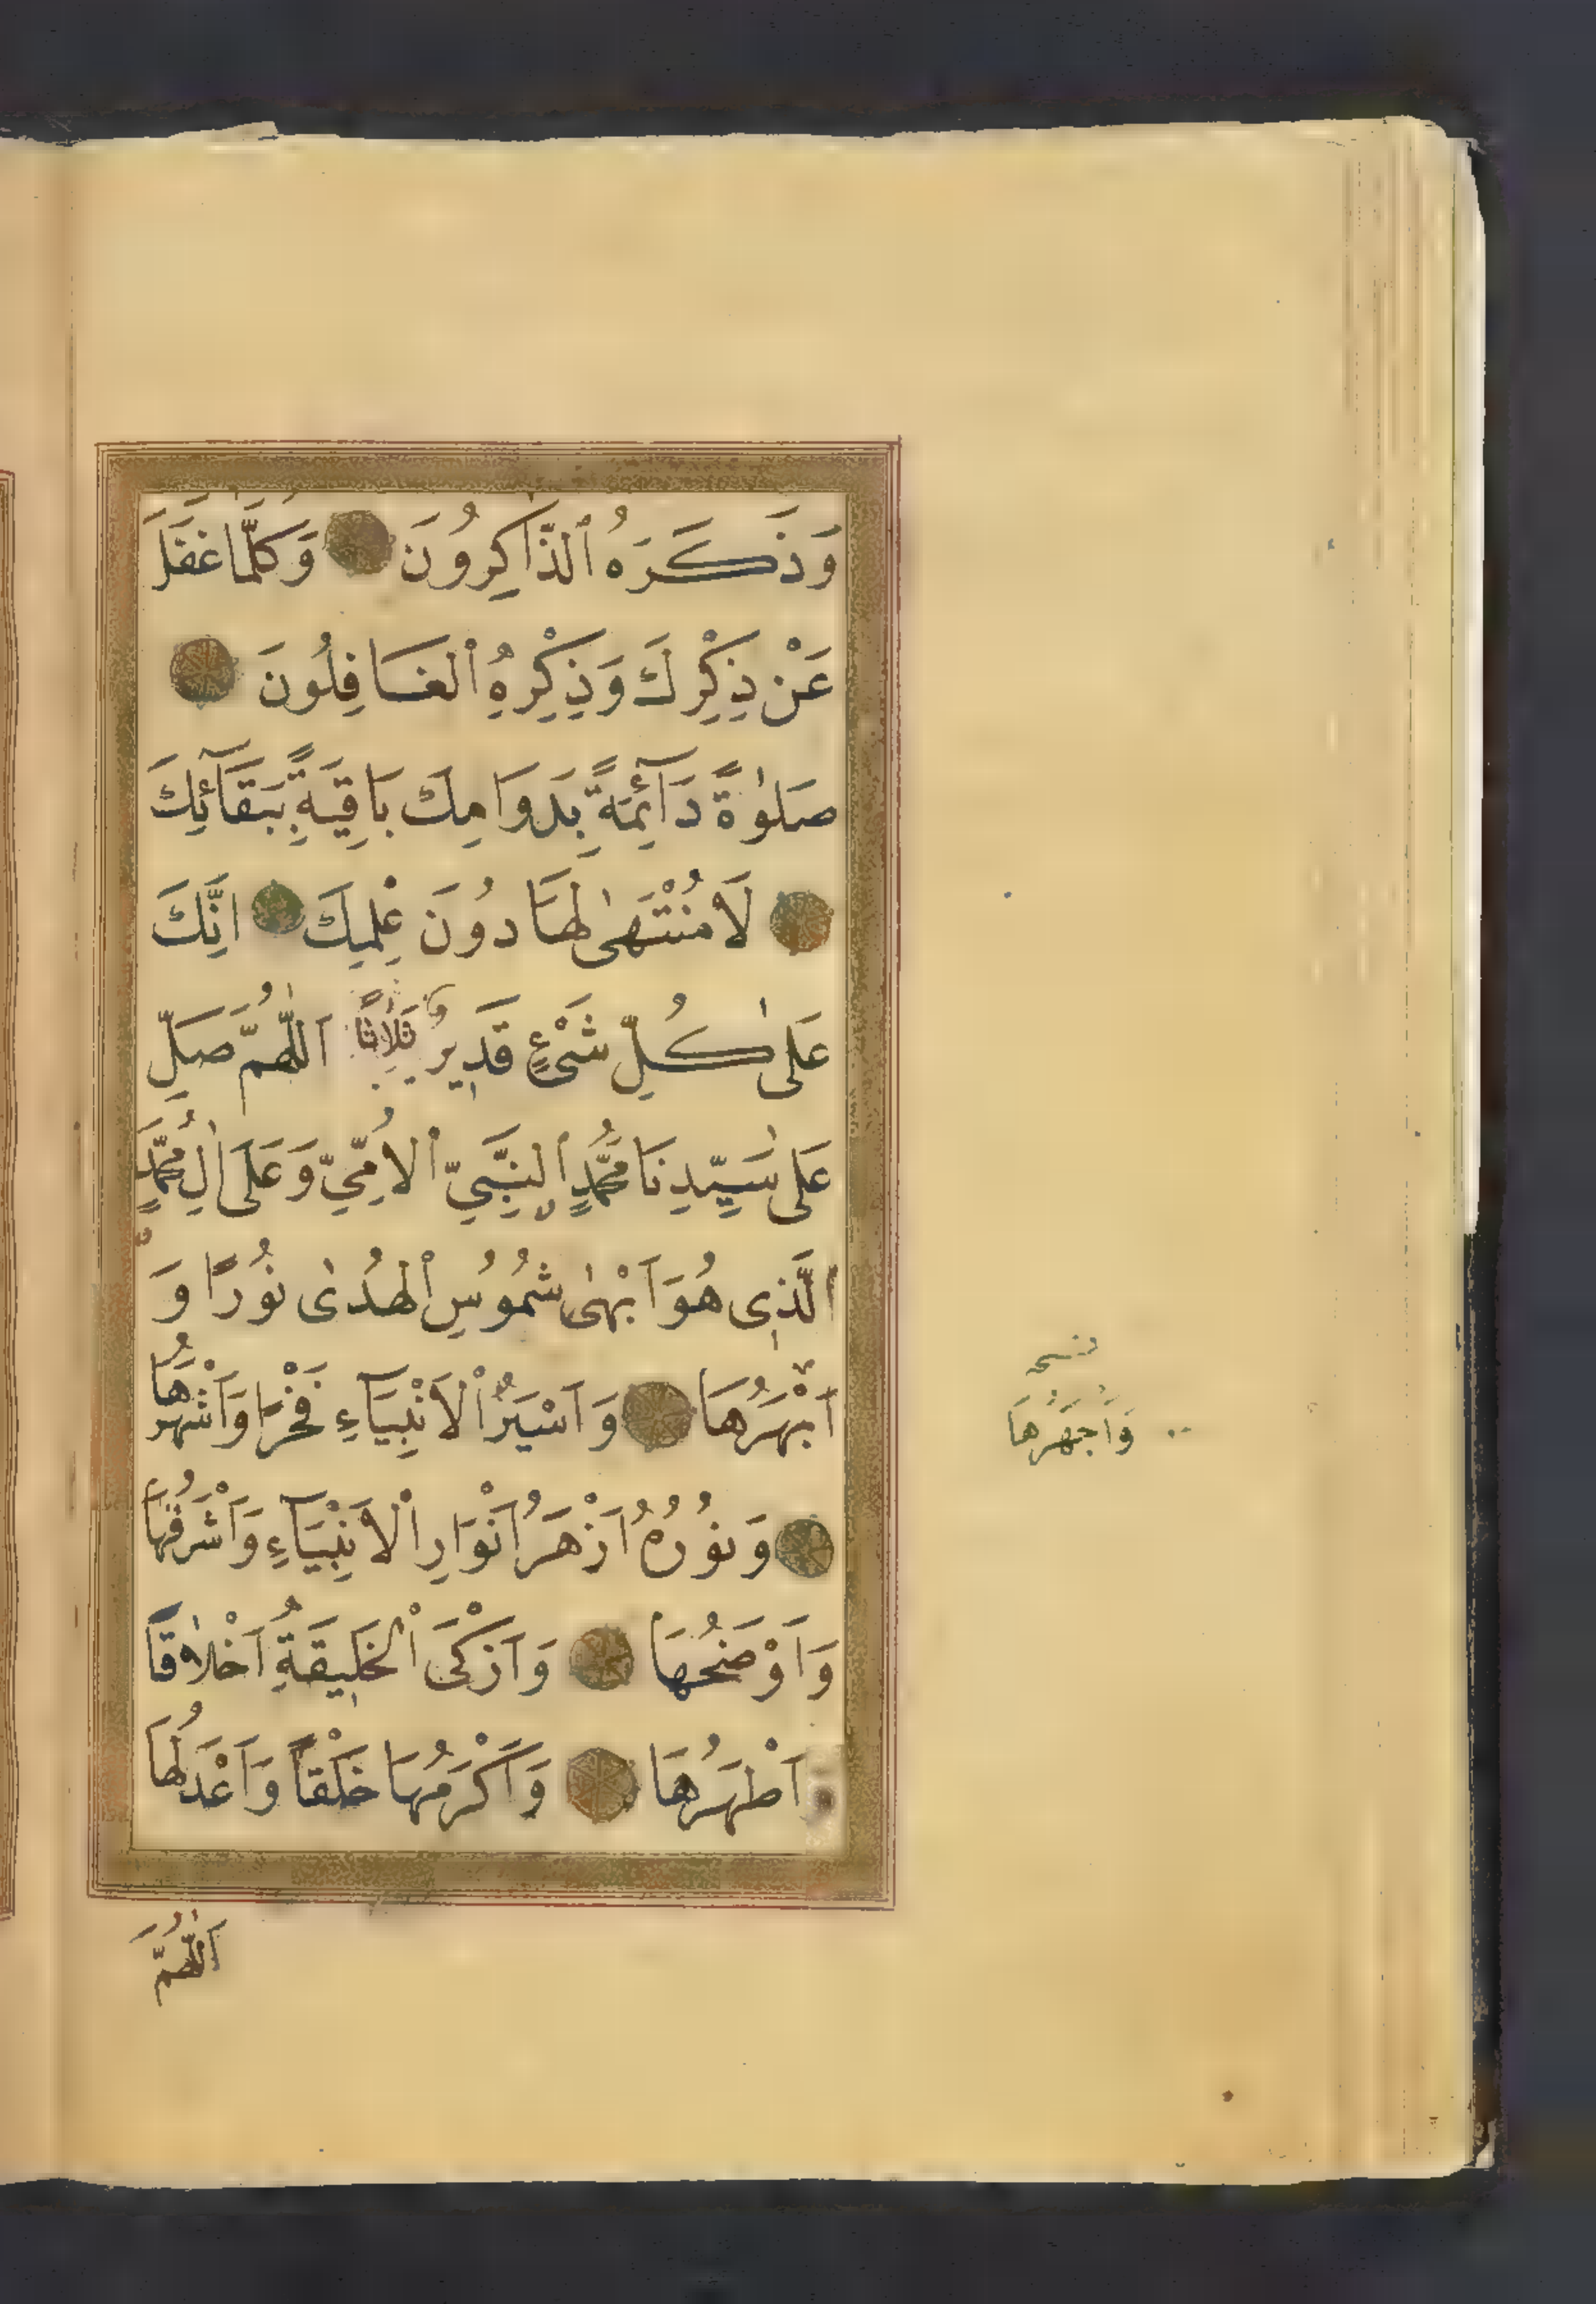 وَذَكَرَهُ ٱلذَّاكِرُونَ وَكُلَّمَا غَفَلَ
عَنْ ذِكْرِكَ وَذِكْرِهِ ٱلْغَافِلُونَ
صَلٰوةً دَآئِمَةً بِدَوَامِكَ بَاقِيَةً بِبَقَآئِكَ
لَا مُنْتَهٰى لَهَا دُونَ عِلْمِكَ اِنَّكَ
عَلٰى كُلِّ شَىْءٍ قَدِيرٌ ثَلَاثًا اَللّٰهُمَّ صَلِّ
عَلٰى سَيِّدِنَا مُحَمَّدٍ ٱلنَّبِيِّ ٱلْاُمِّيِّ وَعَلَى اٰلِ مُحَمَّدٍ
الَّذِى هُوَ اَبْهٰى شُمُوسِ ٱلْهُدٰى نُورًا وَ
اَبْهَرُهَا وَاَسْيَرُ ٱلْاَنْبِيَآءِ فَخْرًا وَاَشْهَرُهَا
وَنُورُهُ اَزْهَرُ اَنْوَارِ ٱلْاَنْبِيَآءِ وَاَشْرَفُهَا
وَاَوْضَحُهَا وَاَزْكَى ٱلْخَلِيقَةِ اَخْلَاقًا
وَاَطْهَرُهَا وَاَكْرَمُهَا خَلْقًا وَاَعْدَلُهَا
نسخه
وَاَجْهَرُهَا
اَللّٰهُمَّ